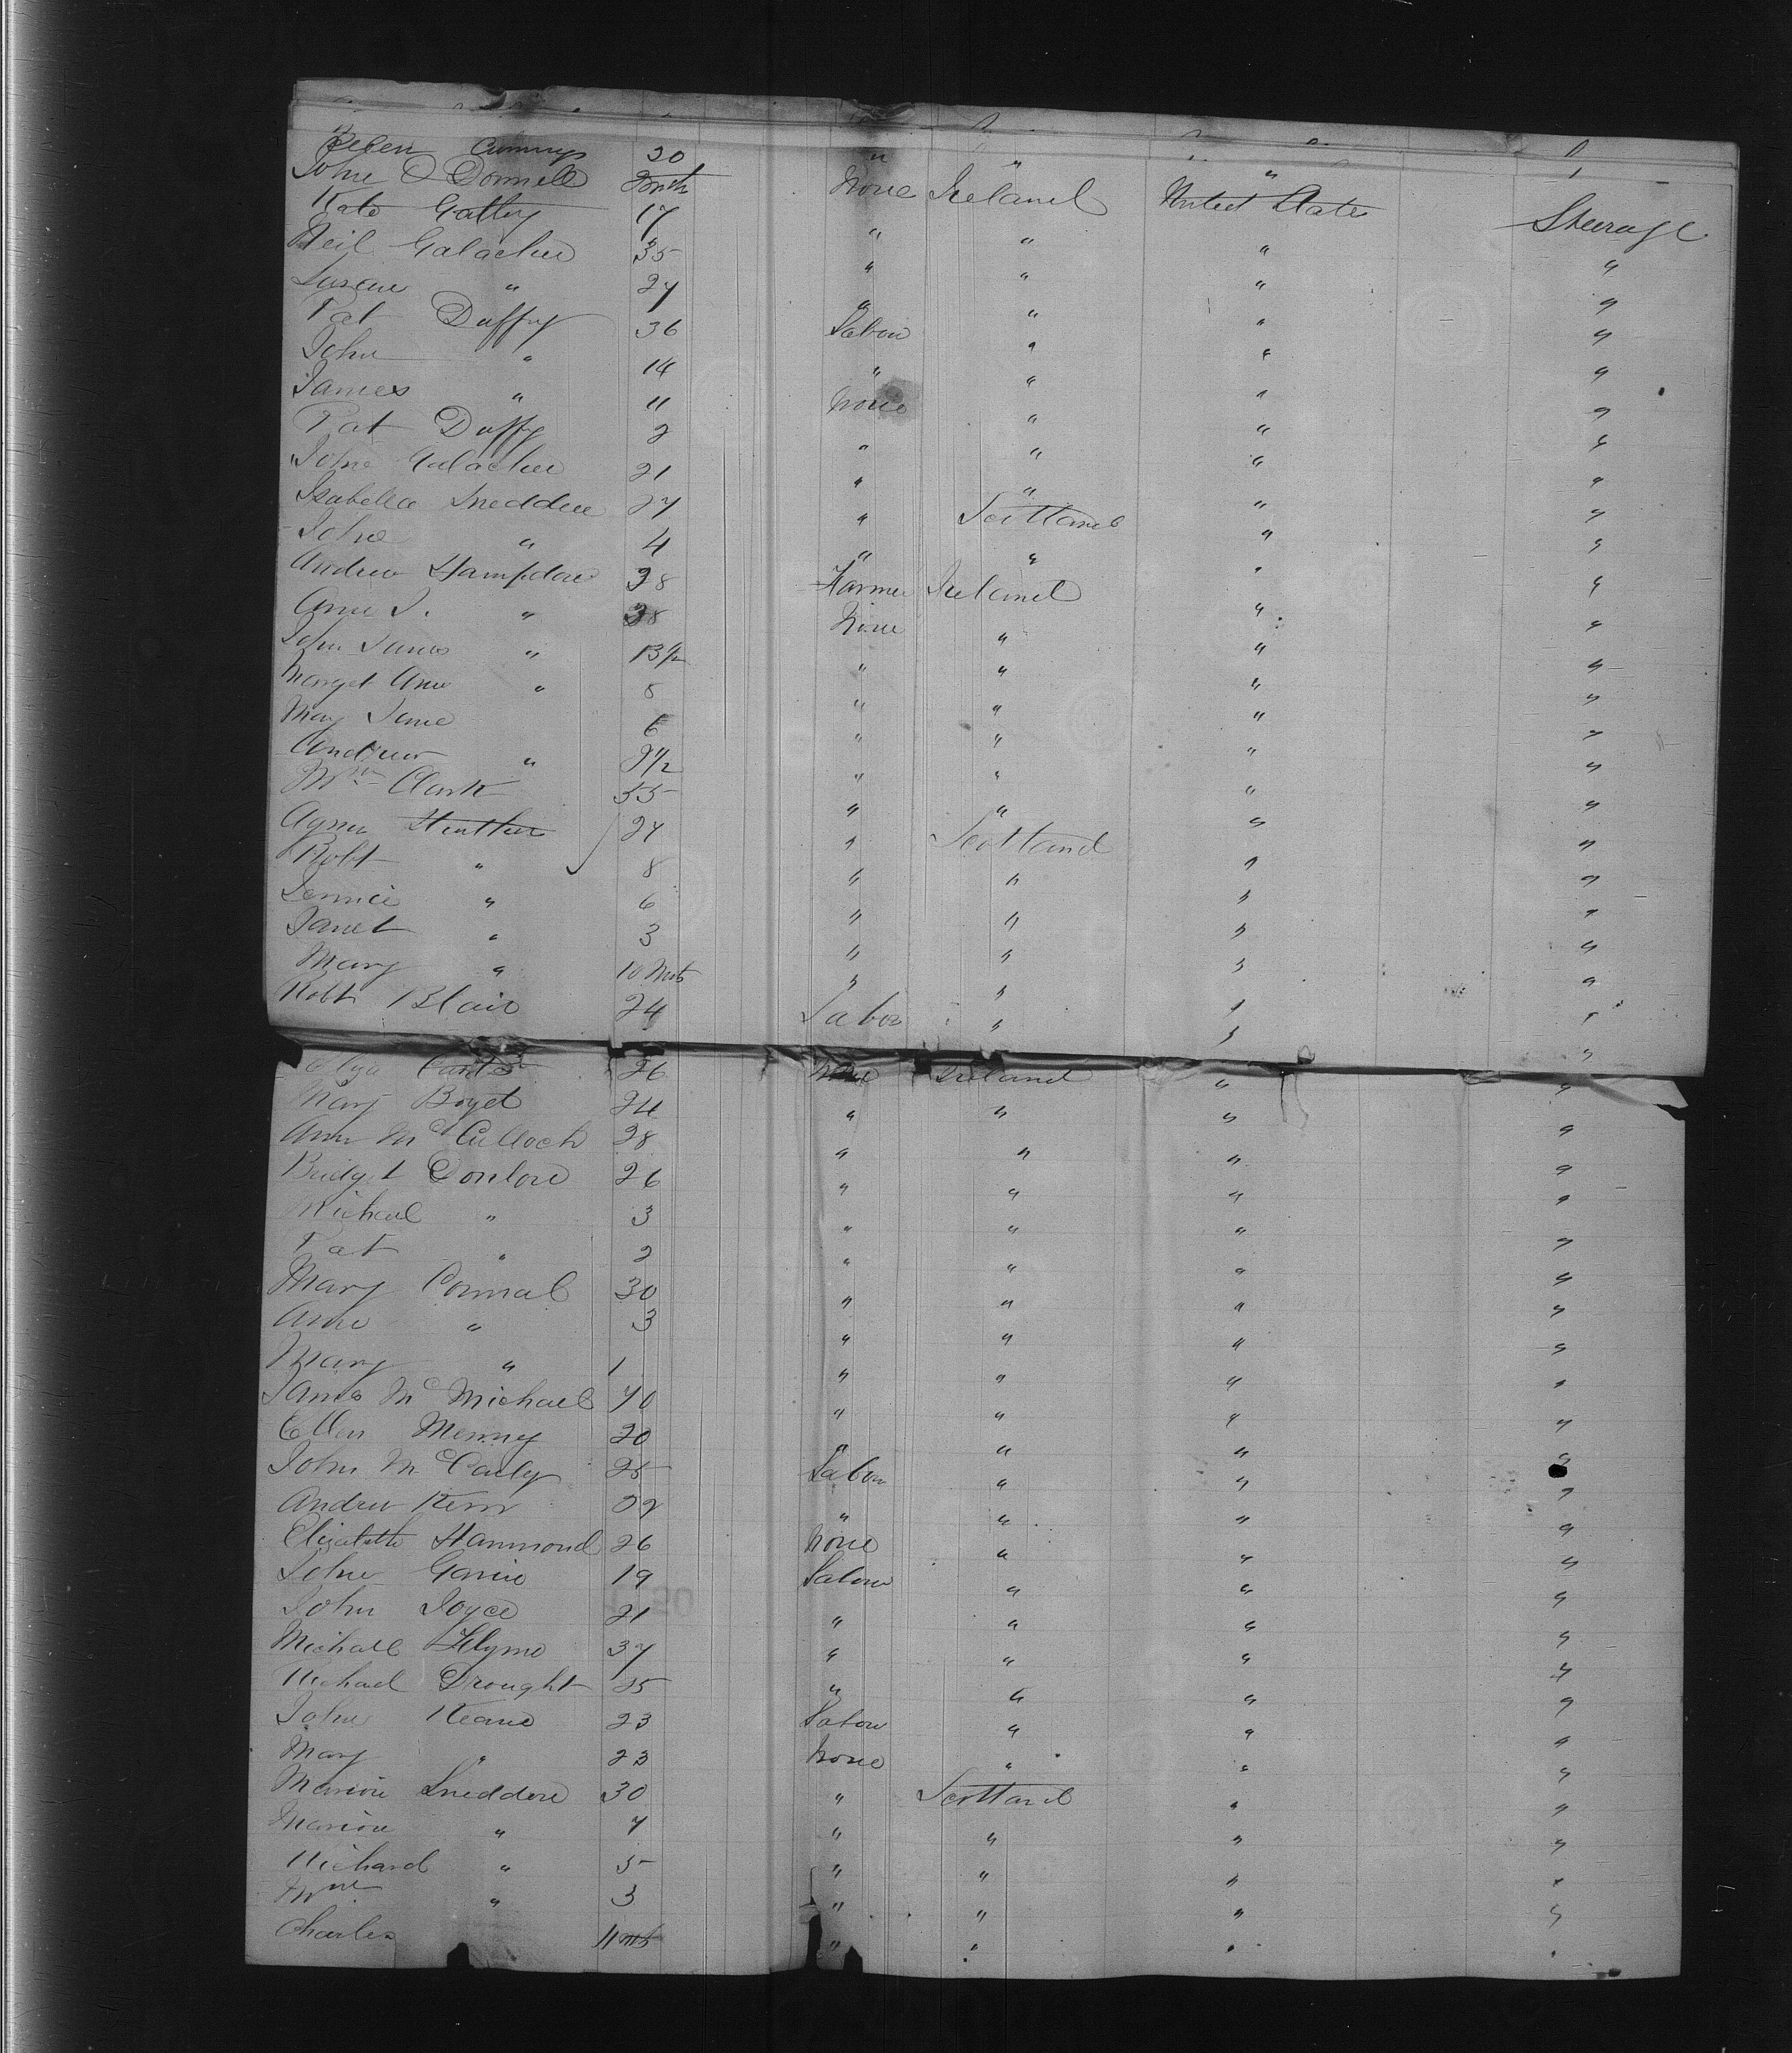 Helen Cumings 20 " " " "
John O Donnell None Ireland United States Steerage
Kate Gatley 17 " " " "
Neil Galacher 35 " " " "
Susan " 27 " " " "
Pat Duffy 36 Labor " " "
John " 14 " " " "
James " 11 None " " "
Pat Duffy 2 " " " "
John Galacher 21 " " " "
Isabella Sneddon 27 " Scotland " "
John " 4 " " " "
Andrew Hampdon 38 Farmer Ireland " "
Ann J. " 38 None " " "
John James " 13 1/2 " " " "
Marget Ann " 8 " " " "
Mary Jane 6 " " " "
Andrew " 2 1/2 " " " "
Wm Clark 55 " " " "
Agnes 27 " Scotland " "
Robt " 8 " " " "
Jennie " 6 " " " "
Janet " 3 " " " "
Mary " 10 Mts " " " "
Robt Blair 24 Labor " " "
Eliza 26 None Ireland " "
Mary Boyd 24 " " " "
Ann McCulloch 28 " " " "
Bridget Donlon 26 " " " "
Micheal " 3 " " " "
Pat " 2 " " " "
Mary Connal 30 " " " "
Ann " 3 " " " "
Mary " 1 " " " "
James McMichael 40 " " " "
Ellen 20 " " " "
John 25 Labor " " "
Andrew Kerr " " " "
Elizabeth Hammond 26 None " " "
John 19 Labor " " "
John Joyce 21 " " " "
Michael Flynn 37 " " " "
Michael Drought 25 " " " "
John Keane 23 Labor " " "
Mary " 23 None " " "
Marion Sneddon 30 " Scotland " "
Marion " 7 " " " "
Richard " 5 " " " "
Wm " 3 " " " "
Charles 11 mts " " " "